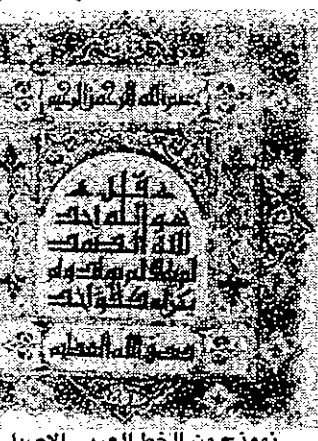 بسم الله الرحمن الرحيم
قل
هو الله احد
الله الصمد
لم يلد ولم يولد ولم
يكن له كفوا احد
صدق الله العظيم
نموذج من الخط العربي الاصيل